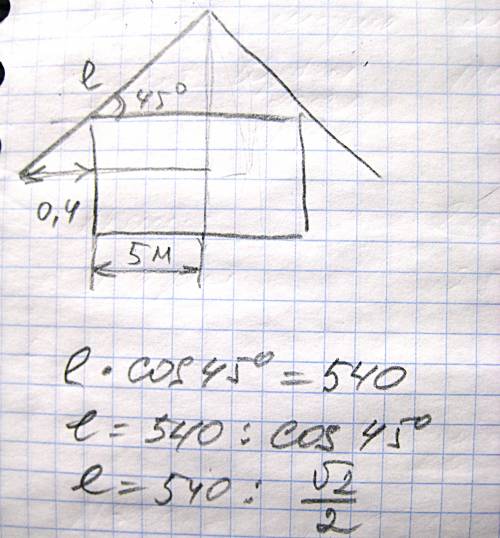 ℓ
45°
0,4
5м
ℓ · cos 45° = 540
ℓ = 540 : cos 45°
ℓ = 540 : √2/2